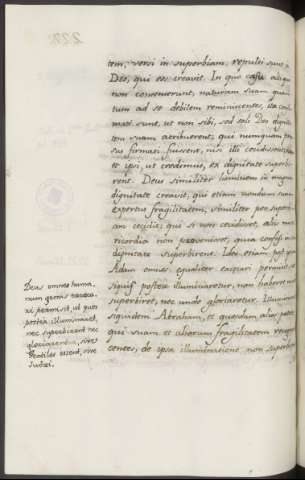 tem, versi in superbiam, repulsi sunt a
Deo, qui eos creavit. In quo casu aliqui
non consenserunt, naturam suam quan
tum ad se debilem reminiscentes, ita confir
mati sunt, ut non sibi, sed soli Deo dignita
tem suam attribuerent; qui numquam
sus firmasi fuissent, nisi illi cecidissent
et ipsi, ut credimus, ex dignitate superbi
rent. Deus similiter hominem in magna
dignitate creavit, qui etiam nondum suam
expertus fragilitatem, similiter per superbi
am cecidit; qui si non cecidisset, alii
ricordia non pervenirent, quia
dignitate superbirent. Ideo etiam post
Adam omnes equaliter excæcari permisit
siquis postea illuminaretur, non haberet unde
superbiret, nec unde gloriaretur. Illuminavit
siquidem Abraham, et quosdam alios patres
qui suam et aliorum fragilitatem recognos
centes, de ipsa illuminatione non superbi
Deus omne huma
num genus excæca
ri permisit, ut quos
postea illuminaret,
nec superbirent nec
gloriarentur, sive
Gentiles essent, sive
Judæi.